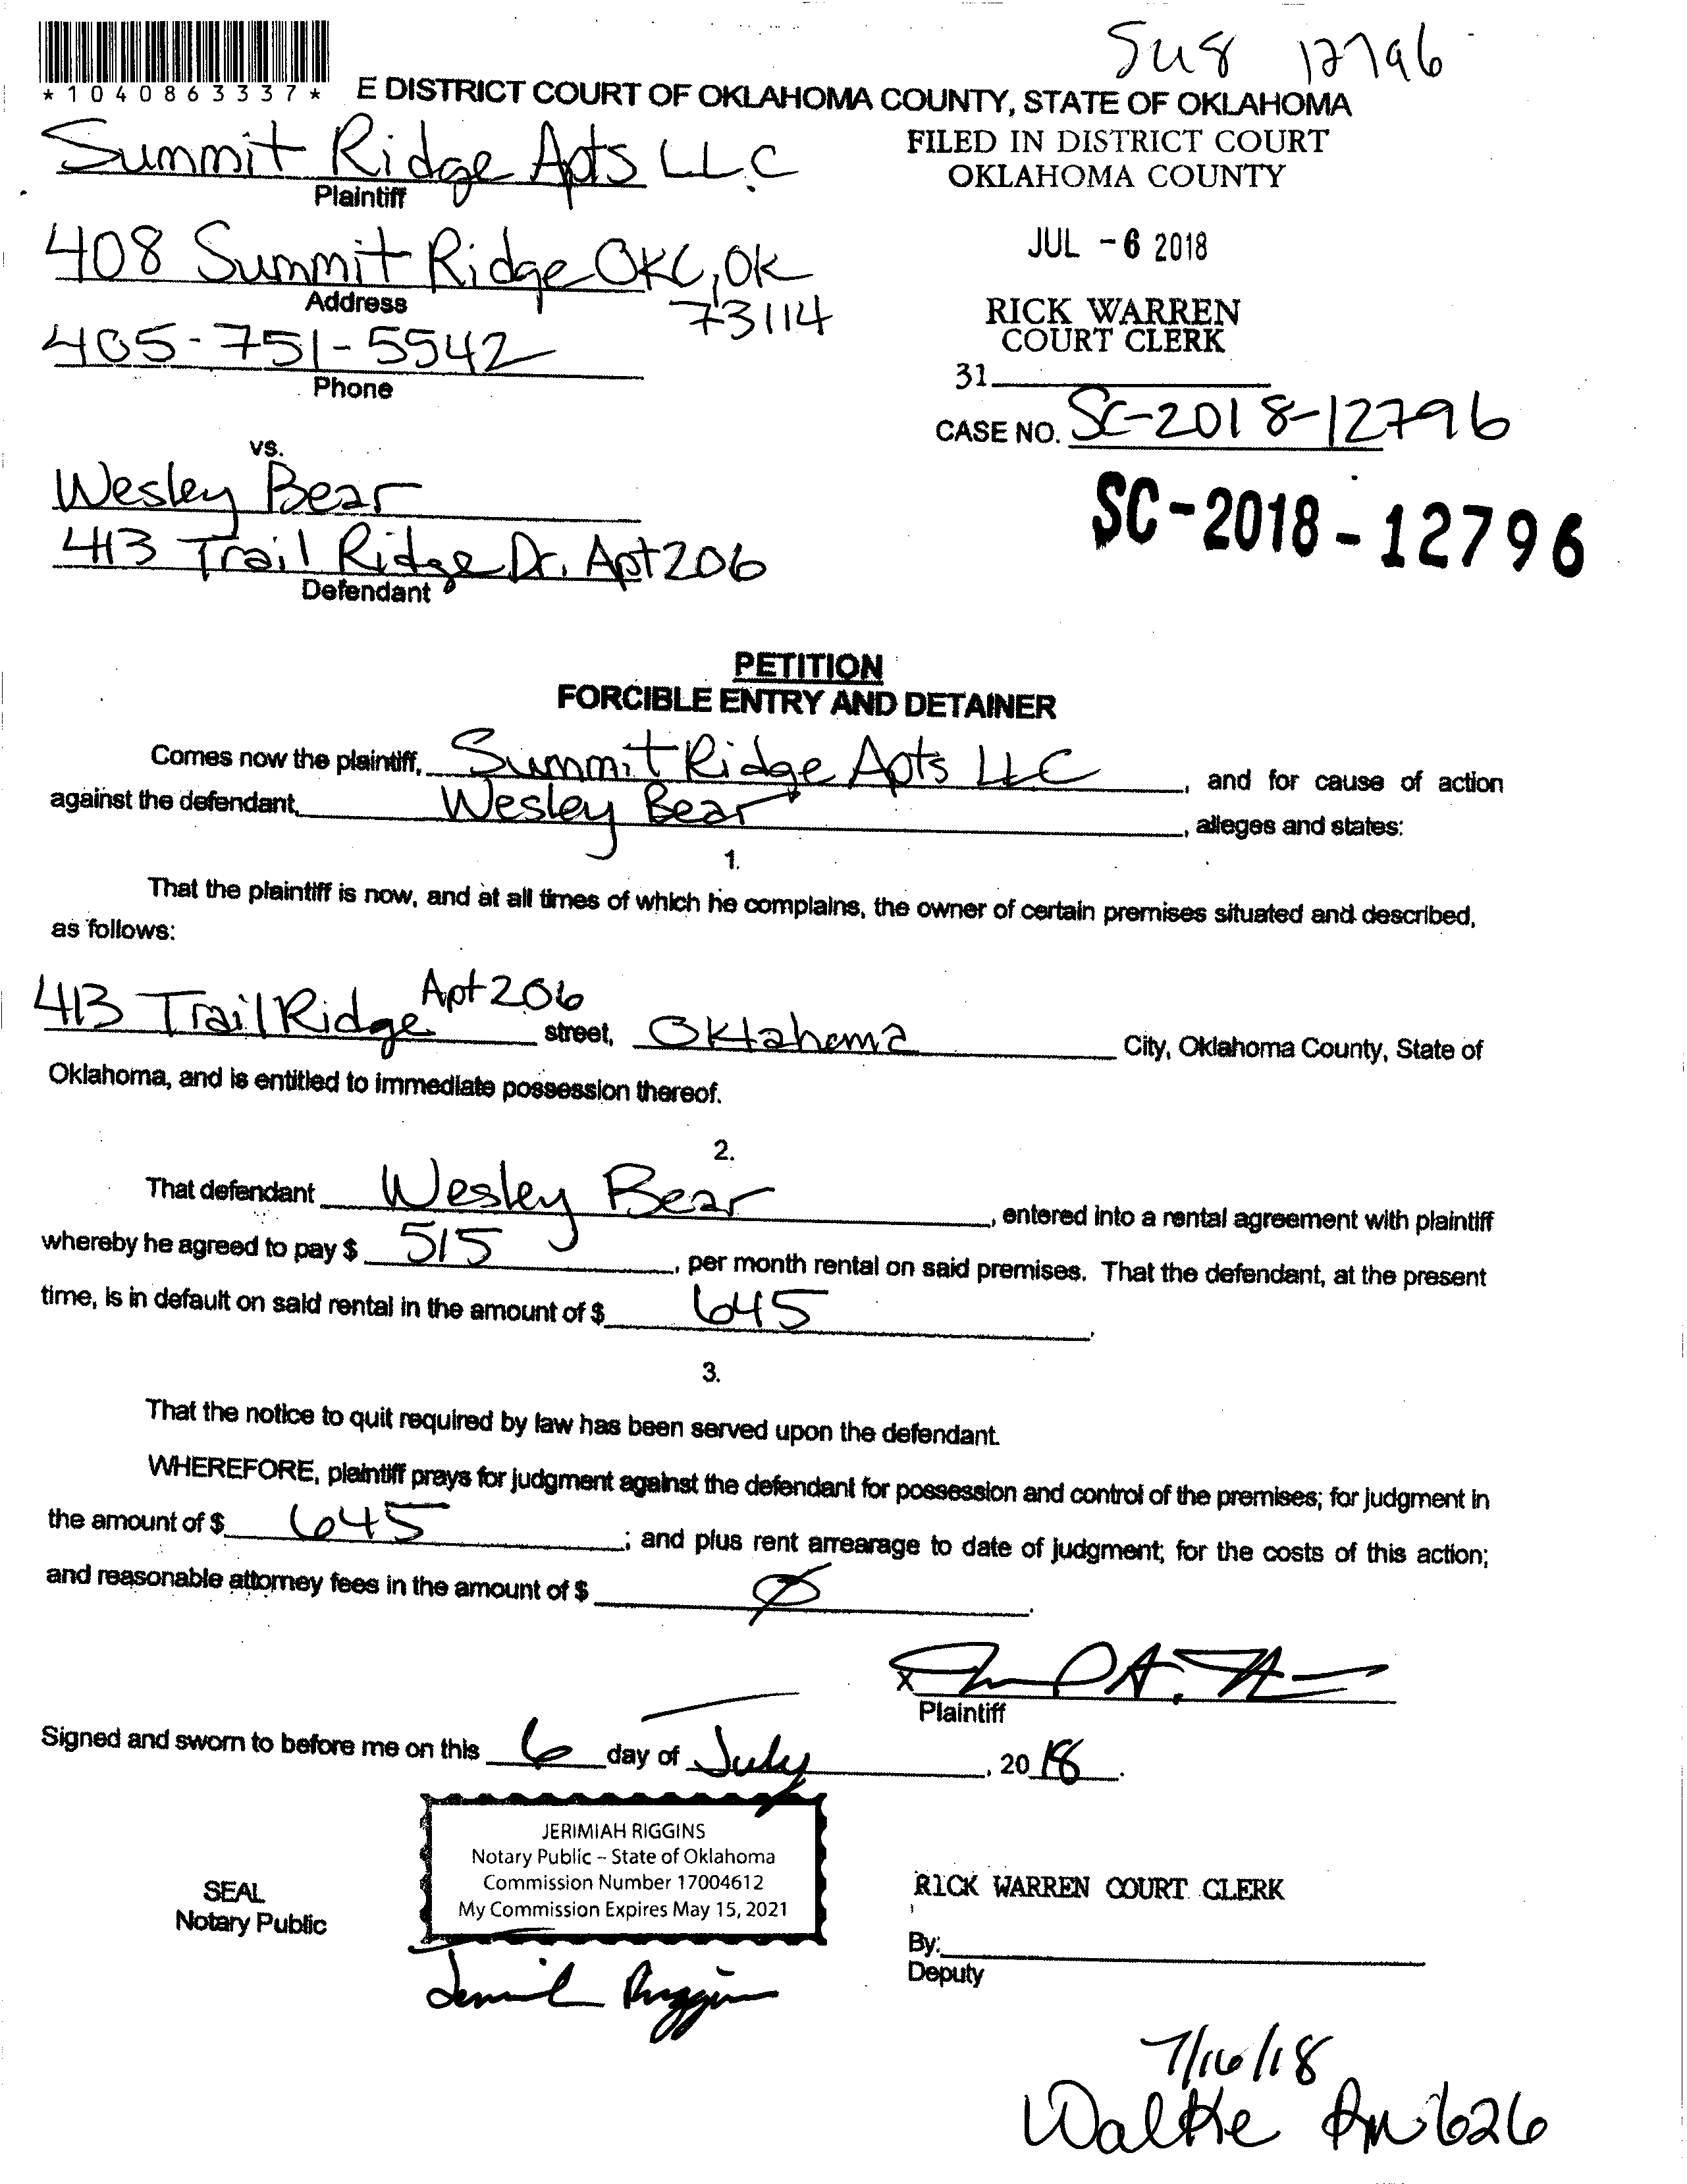 Su8 12796
*1040863337*
E DISTRICT COURT OF OKLAHOMA COUNTY, STATE OF OKLAHOMA
Summit Ridge Apts LLC
Plaintiff
FILED IN DISTRICT COURT
OKLAHOMA COUNTY
408 Summit Ridge OKC, OK
73114
Address
JUL - 6 2018
405-751-5542
Phone
RICK WARREN
COURT CLERK
31
CASE NO. SC-2018-12796
vs.
SC-2018-12796
Wesley Bear
413 Trail Ridge Dr. Apt 206
Defendant
PETITION
FORCIBLE ENTRY AND DETAINER
Comes now the plaintiff, Summit Ridge Apts LLC, and for cause of action
against the defendant, Wesley Bear, alleges and states:
1.
That the plaintiff is now, and at all times of which he complains, the owner of certain premises situated and described,
as follows:
413 Trail Ridge Apt 206 street, Oklahoma City, Oklahoma County, State of
Oklahoma, and is entitled to immediate possession thereof.
2.
That defendant Wesley Bear, entered into a rental agreement with plaintiff
whereby he agreed to pay $ 515, per month rental on said premises. That the defendant, at the present
time, is in default on said rental in the amount of $ 645.
3.
That the notice to quit required by law has been served upon the defendant.
WHEREFORE, plaintiff prays for judgment against the defendant for possession and control of the premises; for judgment in
the amount of $ 645; and plus rent arrearage to date of judgment; for the costs of this action;
and reasonable attorney fees in the amount of $ Ø.
X
Plaintiff
Signed and sworn to before me on this 6 day of July, 2018.
JERIMIAH RIGGINS
Notary Public – State of Oklahoma
Commission Number 17004612
My Commission Expires May 15, 2021
SEAL
Notary Public
RICK WARREN COURT CLERK
By:
Deputy
7/16/18
Walke Rm 626